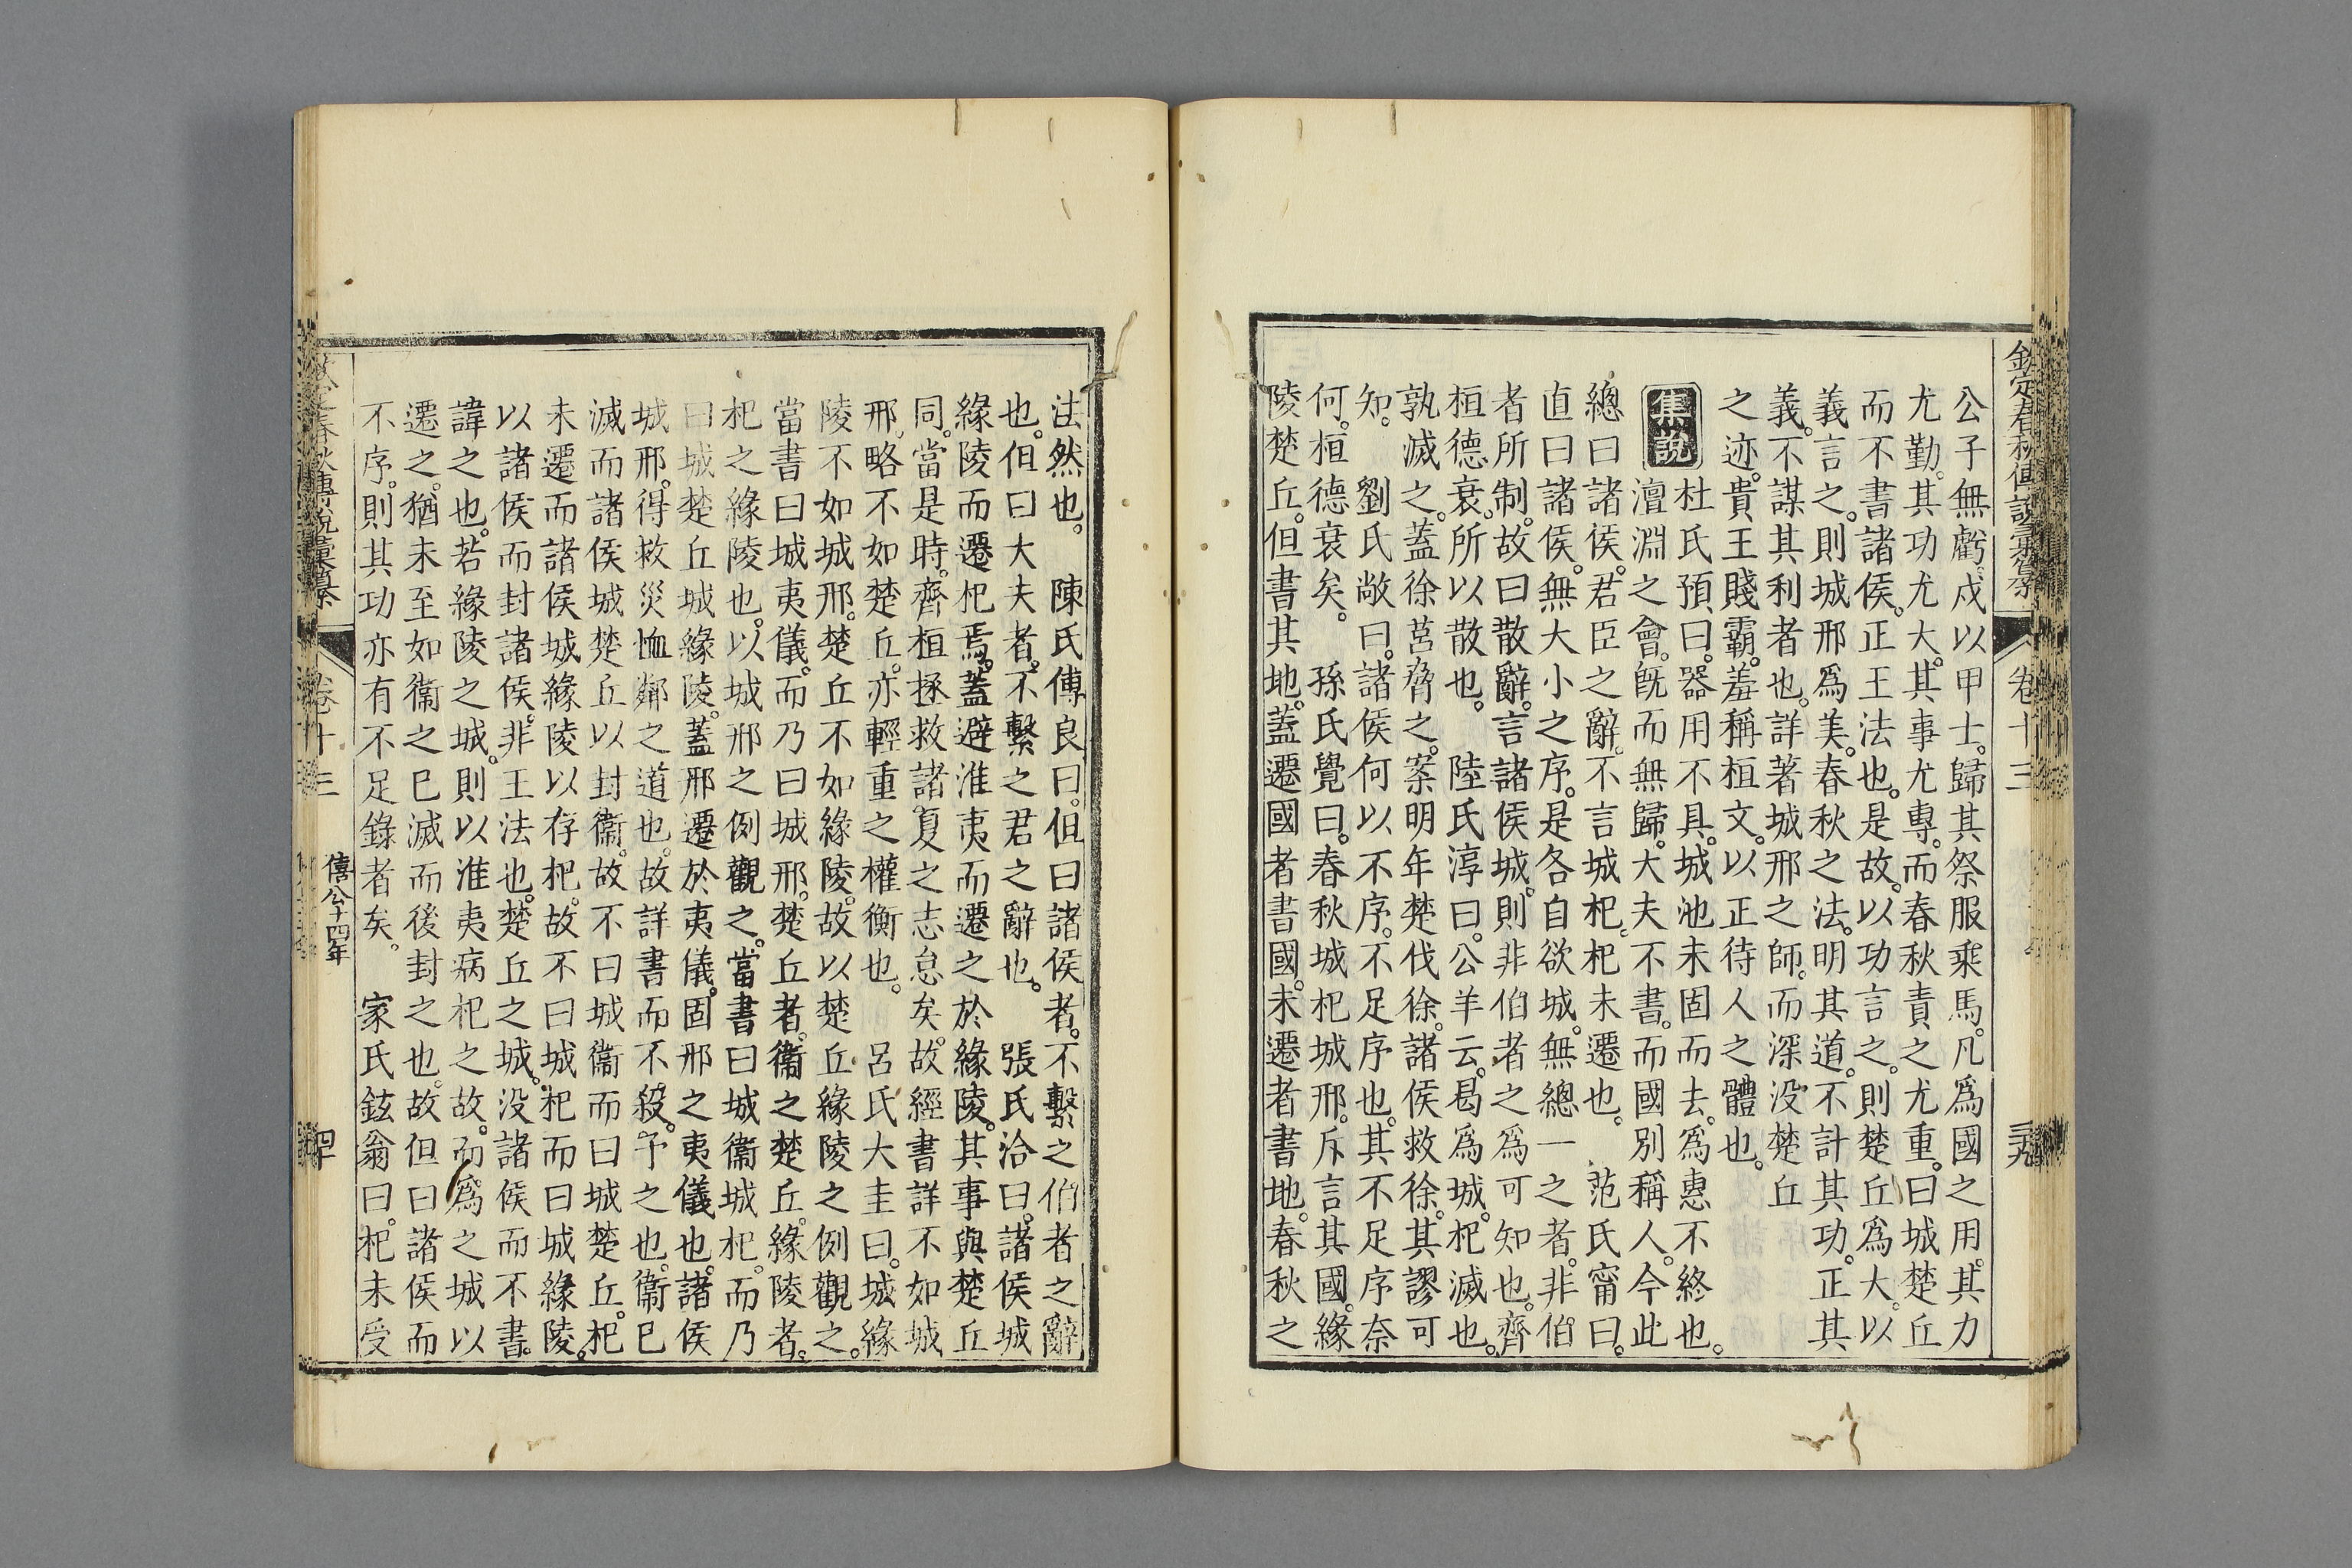 欽定春秋傳說彙纂 卷十三 三九
公子無虧戍以甲士。歸其祭服乘馬。凡爲國之用。其力
尤勤。其功尤大。其事尤專。而春秋責之尤重。曰城楚丘
而不書諸侯。正王法也。是故。以功言之。則楚丘爲大。以
義言之。則城邢爲美。春秋之法。明其道。不計其功。正其
義。不謀其利者也。詳著城邢之師。而深没楚丘
之迹。貴王賤霸。羞稱桓文。以正待人之體也。
集說 杜氏預曰。器用不具。城池未固而去。爲惠不終也。
澶淵之會。旣而無歸。大夫不書。而國別稱人。今此
總曰諸侯。君臣之辭。不言城杞。杞未遷也。 范氏甯曰。
直曰諸侯。無大小之序。是各自欲城。無總一之者。非伯
者所制。故曰散辭。言諸侯城。則非伯者之爲可知也。齊
桓德衰。所以散也。 陸氏淳曰。公羊云。曷爲城。杞滅也。
孰滅之。蓋徐莒脅之。案明年楚伐徐。諸侯救徐。其謬可
知。 劉氏敞曰。諸侯何以不序。不足序也。其不足序奈
何。桓德衰矣。 孫氏覺曰。春秋城杞城邢。斥言其國。緣
陵楚丘。但書其地。蓋遷國者書國。未遷者書地。春秋之
法然也。 陳氏傅良曰。但曰諸侯者。不繫之伯者之辭
也。但曰大夫者。不繫之君之辭也。 張氏洽曰。諸侯城
緣陵而遷杞焉。蓋避淮夷而遷之於緣陵。其事與楚丘
同。當是時。齊桓拯救諸夏之志怠矣。故經書詳不如城
邢。略不如楚丘。亦輕重之權衡也。 呂氏大圭曰。城緣
陵不如城邢。楚丘不如緣陵。故以楚丘緣陵之例觀之。
當書曰城夷儀。而乃曰城邢。楚丘者。衞之楚丘。緣陵者。
杞之緣陵也。以城邢之例觀之。當書曰城衞城杞。而乃
曰城楚丘城緣陵。蓋邢遷於夷儀。固邢之夷儀也。諸侯
城邢。得救災恤鄰之道也。故詳書而不殺。予之也。衞已
滅而諸侯城楚丘以封衞。故不曰城衞而曰城楚丘。杞
未遷而諸侯城緣陵以存杞。故不曰城杞而曰城緣陵。
以諸侯而封諸侯。非王法也。楚丘之城。没諸侯而不書。
諱之也。若緣陵之城。則以淮夷病杞之故。而爲之城以
遷之。猶未至如衞之已滅而後封之也。故但曰諸侯而
不序。則其功亦有不足錄者矣。 家氏鉉翁曰。杞未受
欽定春秋傳說彙纂 卷十三 僖公十四年 四十